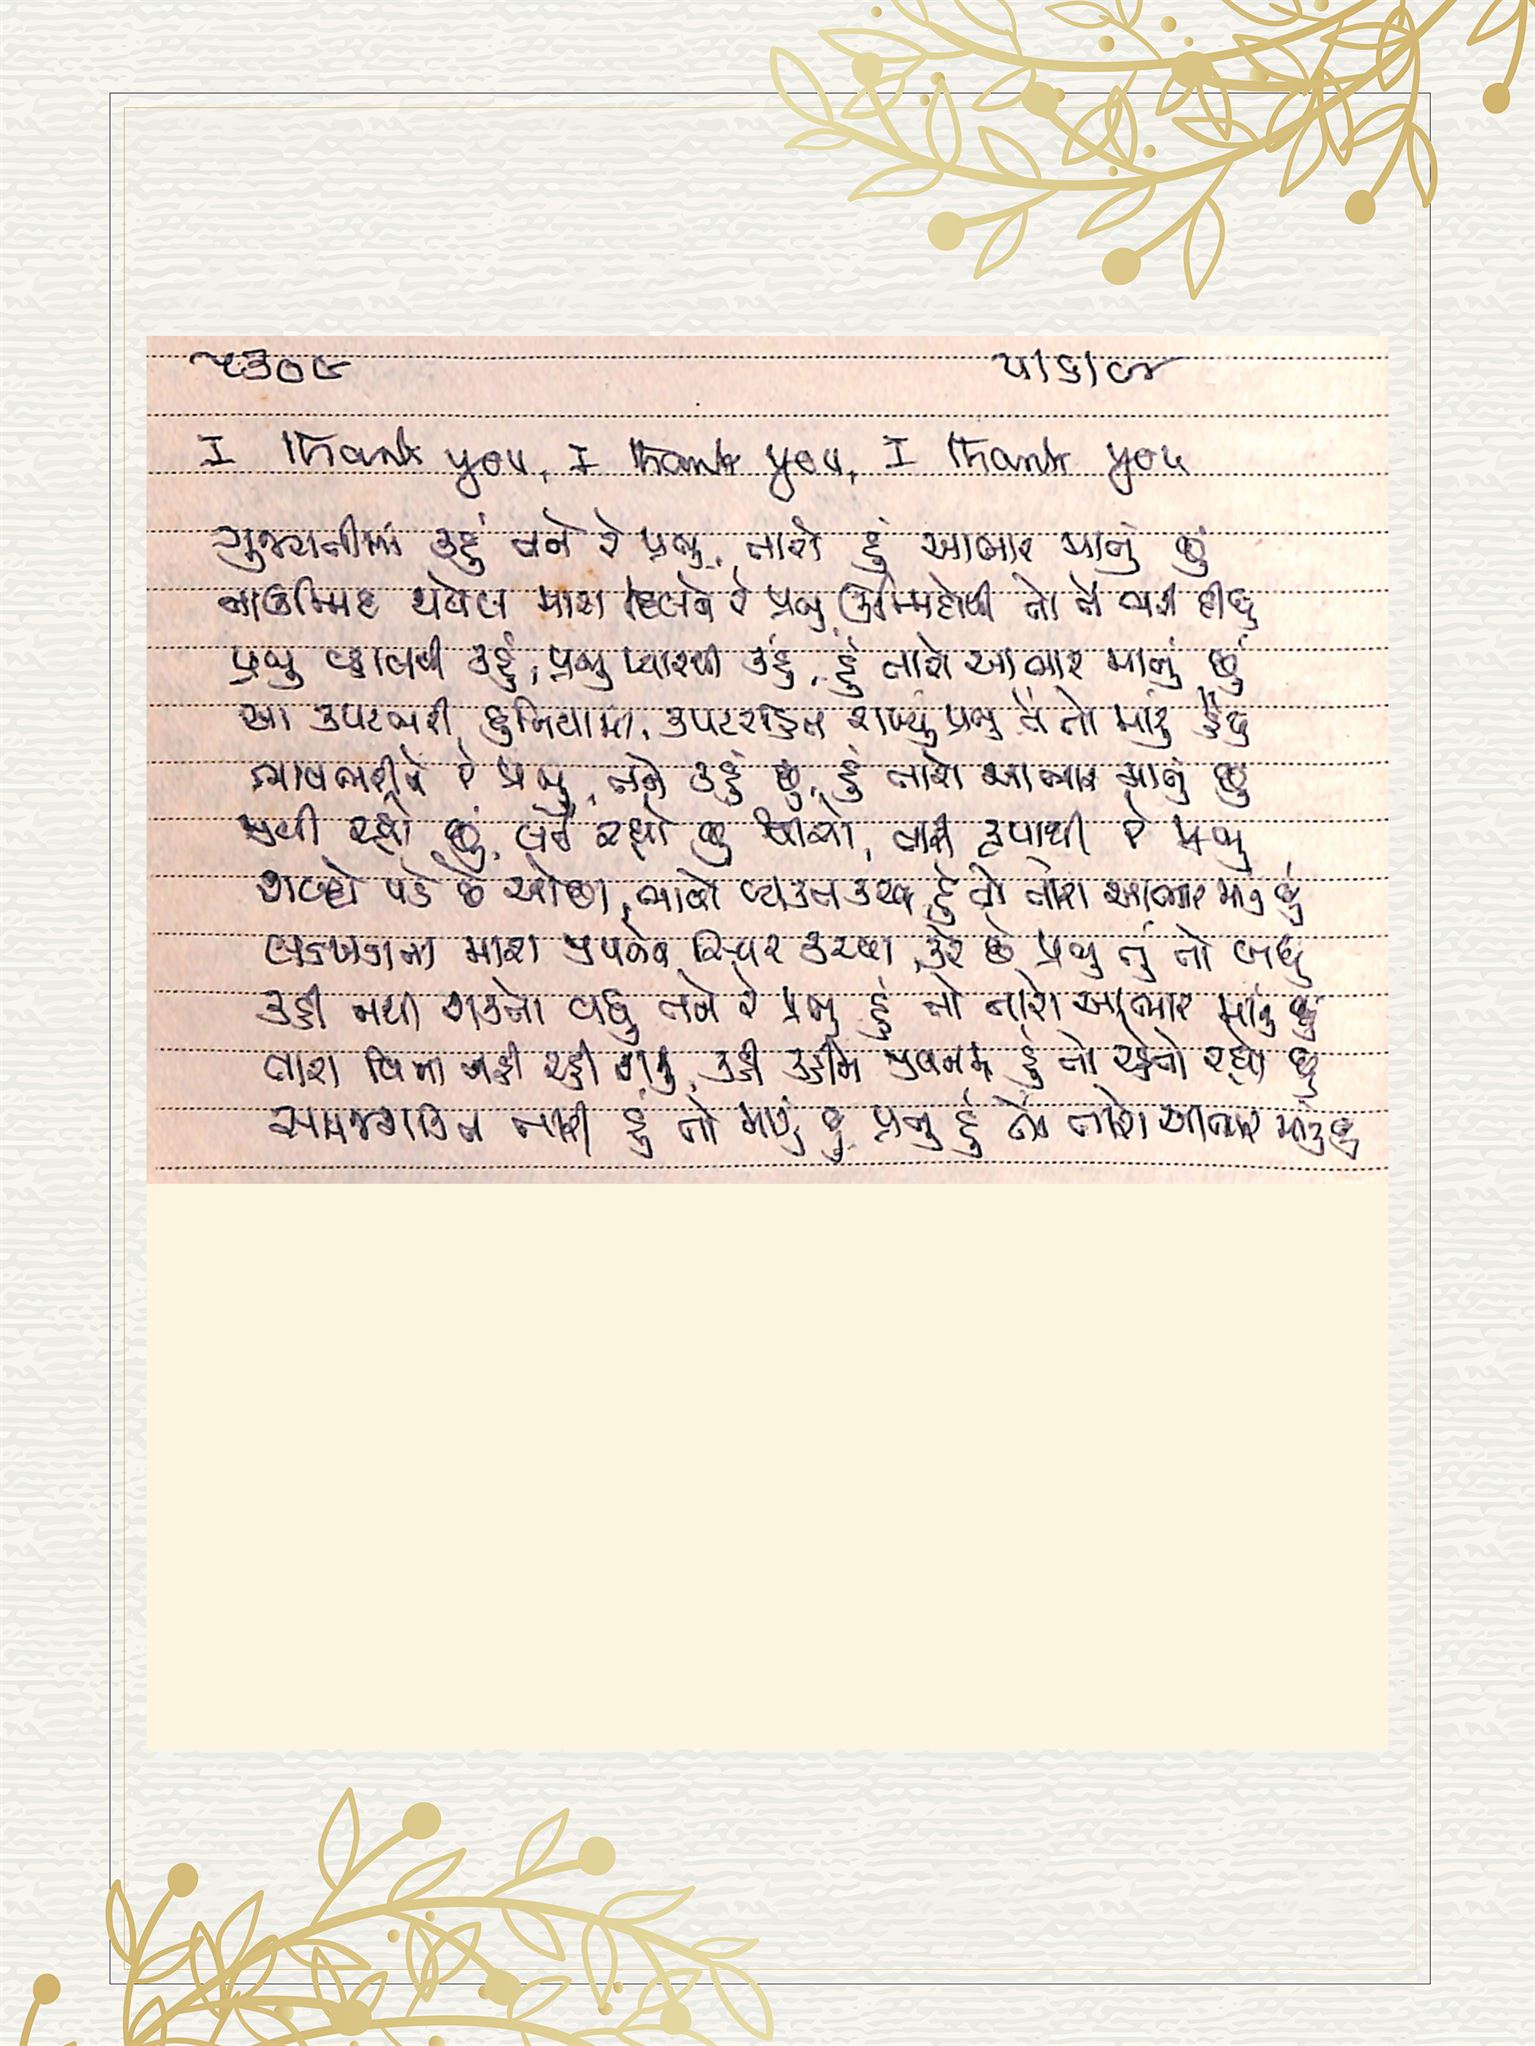 ૫૩૦૯ ૫/૬/૯૪
I thank you, I thank you, I thank you
ગુજરાતીમાં કહું તને રે પ્રભુ, તારો હું આભાર માનું છું
નાઉમ્મિદ થયેલ મારા દિલને રે પ્રભુ, ઉમ્મિદોથી તો તેં ભરી દીધું
પ્રભુ વ્હાલથી કહું, પ્રભુ પ્યારથી કહું, હું તારો આભાર માનું છું
આ કપટભરી દુનિયામાં, કપટરહિત રાખ્યું પ્રભુ તેં તો મારું હૈયું
ભાવભરીને રે પ્રભુ, તને કહું છું, હું તારો આભાર માનું છું
રહ્યો છું, રહ્યો છું શ્વાસો, તારી કૃપાથી રે પ્રભુ
શબ્દો પડે છે ઓછા, ભાવો વ્યક્ત કરવા, હું તો તારો આભાર માનું છું
લડખડાતા મારા સ્થિર કરવા, કરે છે પ્રભુ તું તો બધું
કહી નથી શકતો વધુ તને રે પ્રભુ હું તો તારો આભાર માનું છું
તારા વિના નહીં રહી શકું, કહી કહીને હું તો કહેતો રહ્યો છું
તારી હું તો માગું છું પ્રભુ હું તો તારો આભાર માનું છું